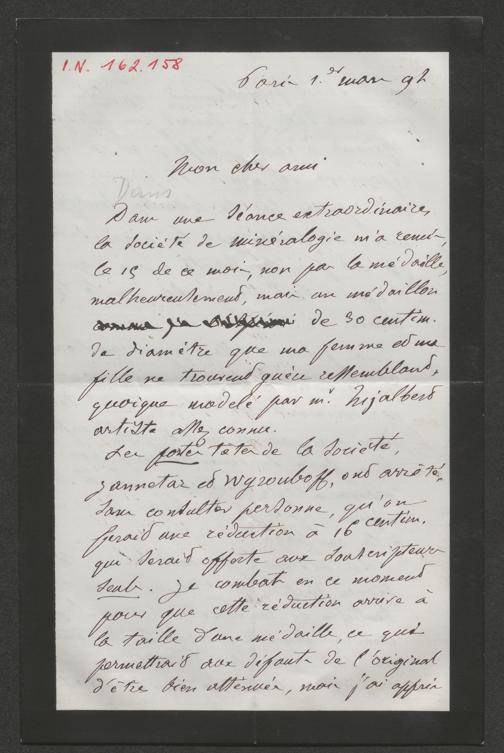 I.N. 162.158
Paris 1.er mars 92
Mon cher ami
Dans une séance extraordinaire,
la Société de minéralogie m'a remis,
le 15 de ce mois, non pas la médaille,
malheureusement, mais un médaillon
de 30 centim.
de diamètre que ma femme et ma
fille ne trouvent guère ressemblant,
quoique modelé par mr. Injalbert
artiste assez connu.
Les fortes têtes de la Société,
Jannetaz et Wyrouboff, ont arrêté,
sans consulter personne, qu'on
ferait une réduction à 16 centim.
qui serait offerte aux souscripteurs
seuls. Je combat en ce moment
pour que cette réduction arrive à
la taille d'une médaille, ce qui
permettrait aux défauts de l'original
d'être bien atténués, mais j'ai appris